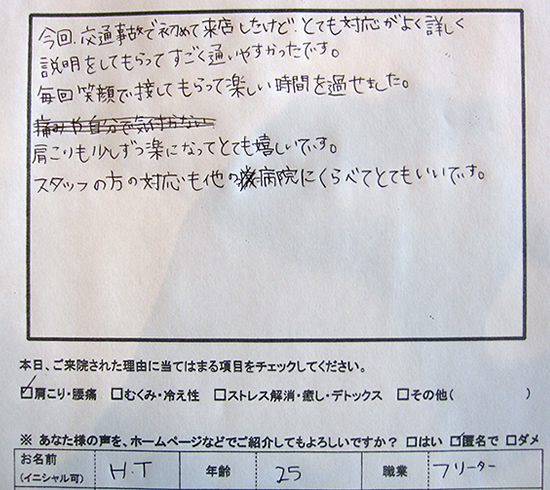 今回、交通事故で初めて来店したけど、とても対応がよく詳しく
説明をしてもらってすごく通いやすかったです。
毎回笑顔で接してもらって楽しい時間を過せました。
痛みや自分で気付かない
肩こりも少しずつ楽になってとても嬉しいです。
スタッフの方の対応も他の病院にくらべてとてもいいです。
本日、ご来院された理由に当てはまる項目をチェックしてください。
☑肩こり・腰痛 □むくみ・冷え性 □ストレス解消・癒し・デトックス □その他( )
※ あなた様の声を、ホームページなどでご紹介してもよろしいですか？ □はい ☑匿名で □ダメ
お名前 (イニシャル可) H.T 年齢 25 職業 フリーター